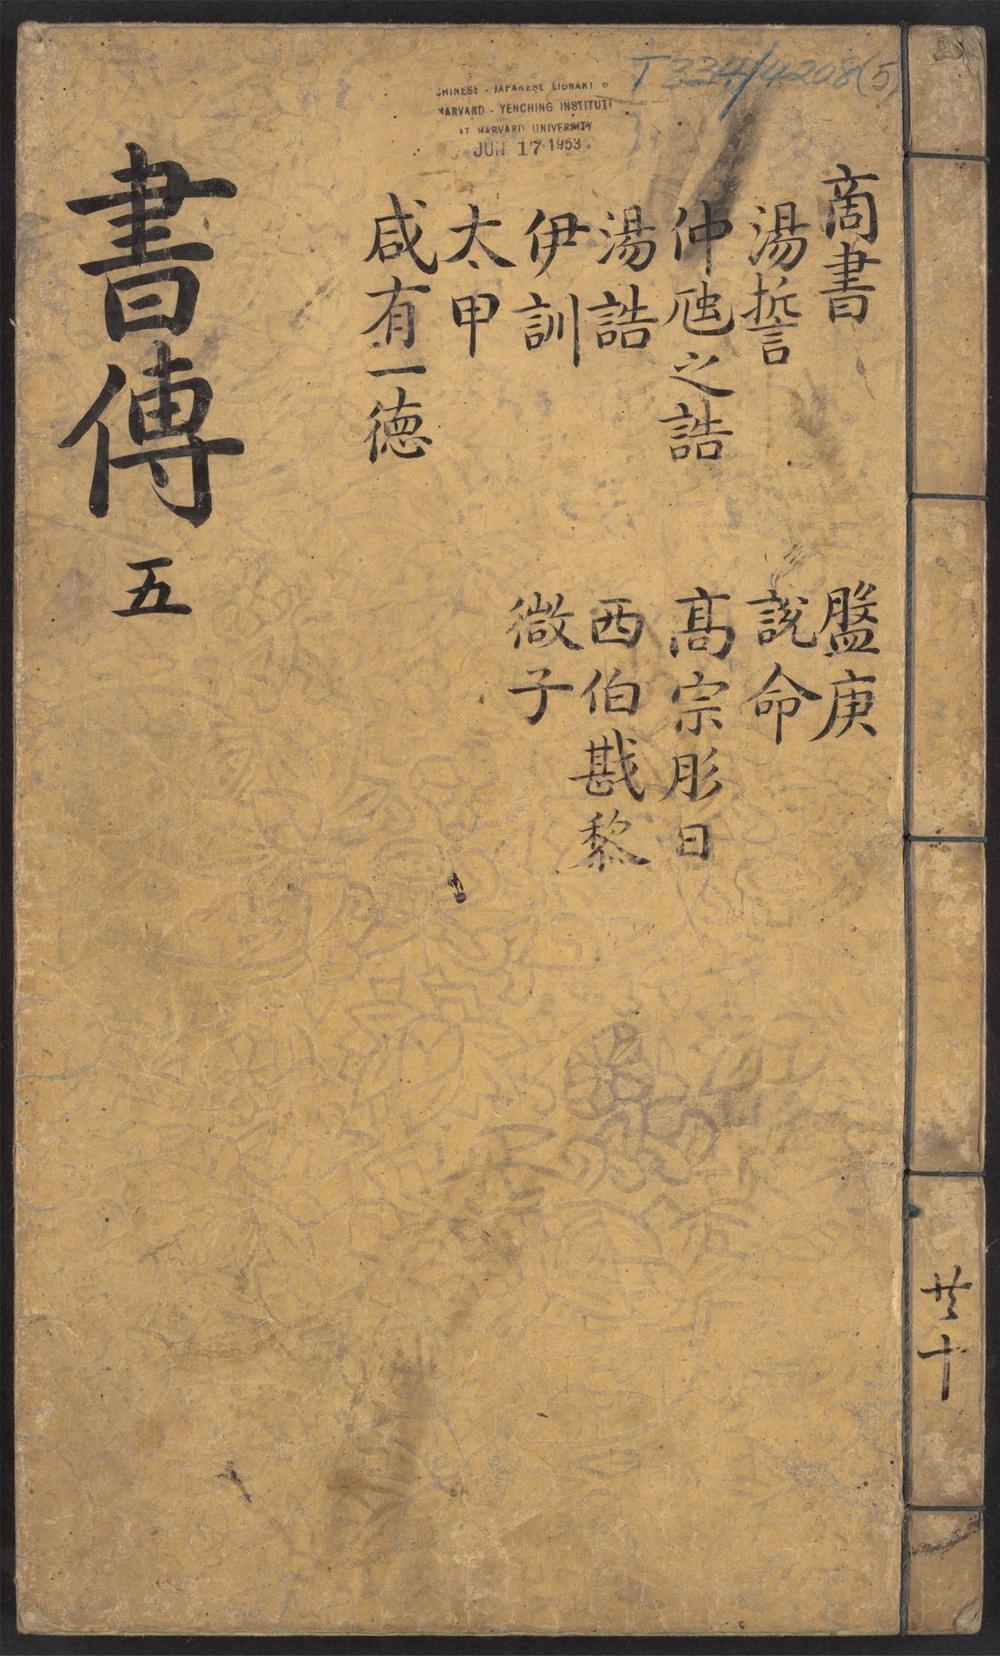 T 334/4208(5)
CHINESE - JAPANESE LIBRARY
HARVARD - YENCHING INSTITUTE
AT HARVARD UNIVERSITY
JUN 17 1953
商書
湯誓
仲虺之誥
湯誥
伊訓
太甲
咸有一德
盤庚
說命
高宗肜日
西伯戡黎
微子
書傳 五
共十